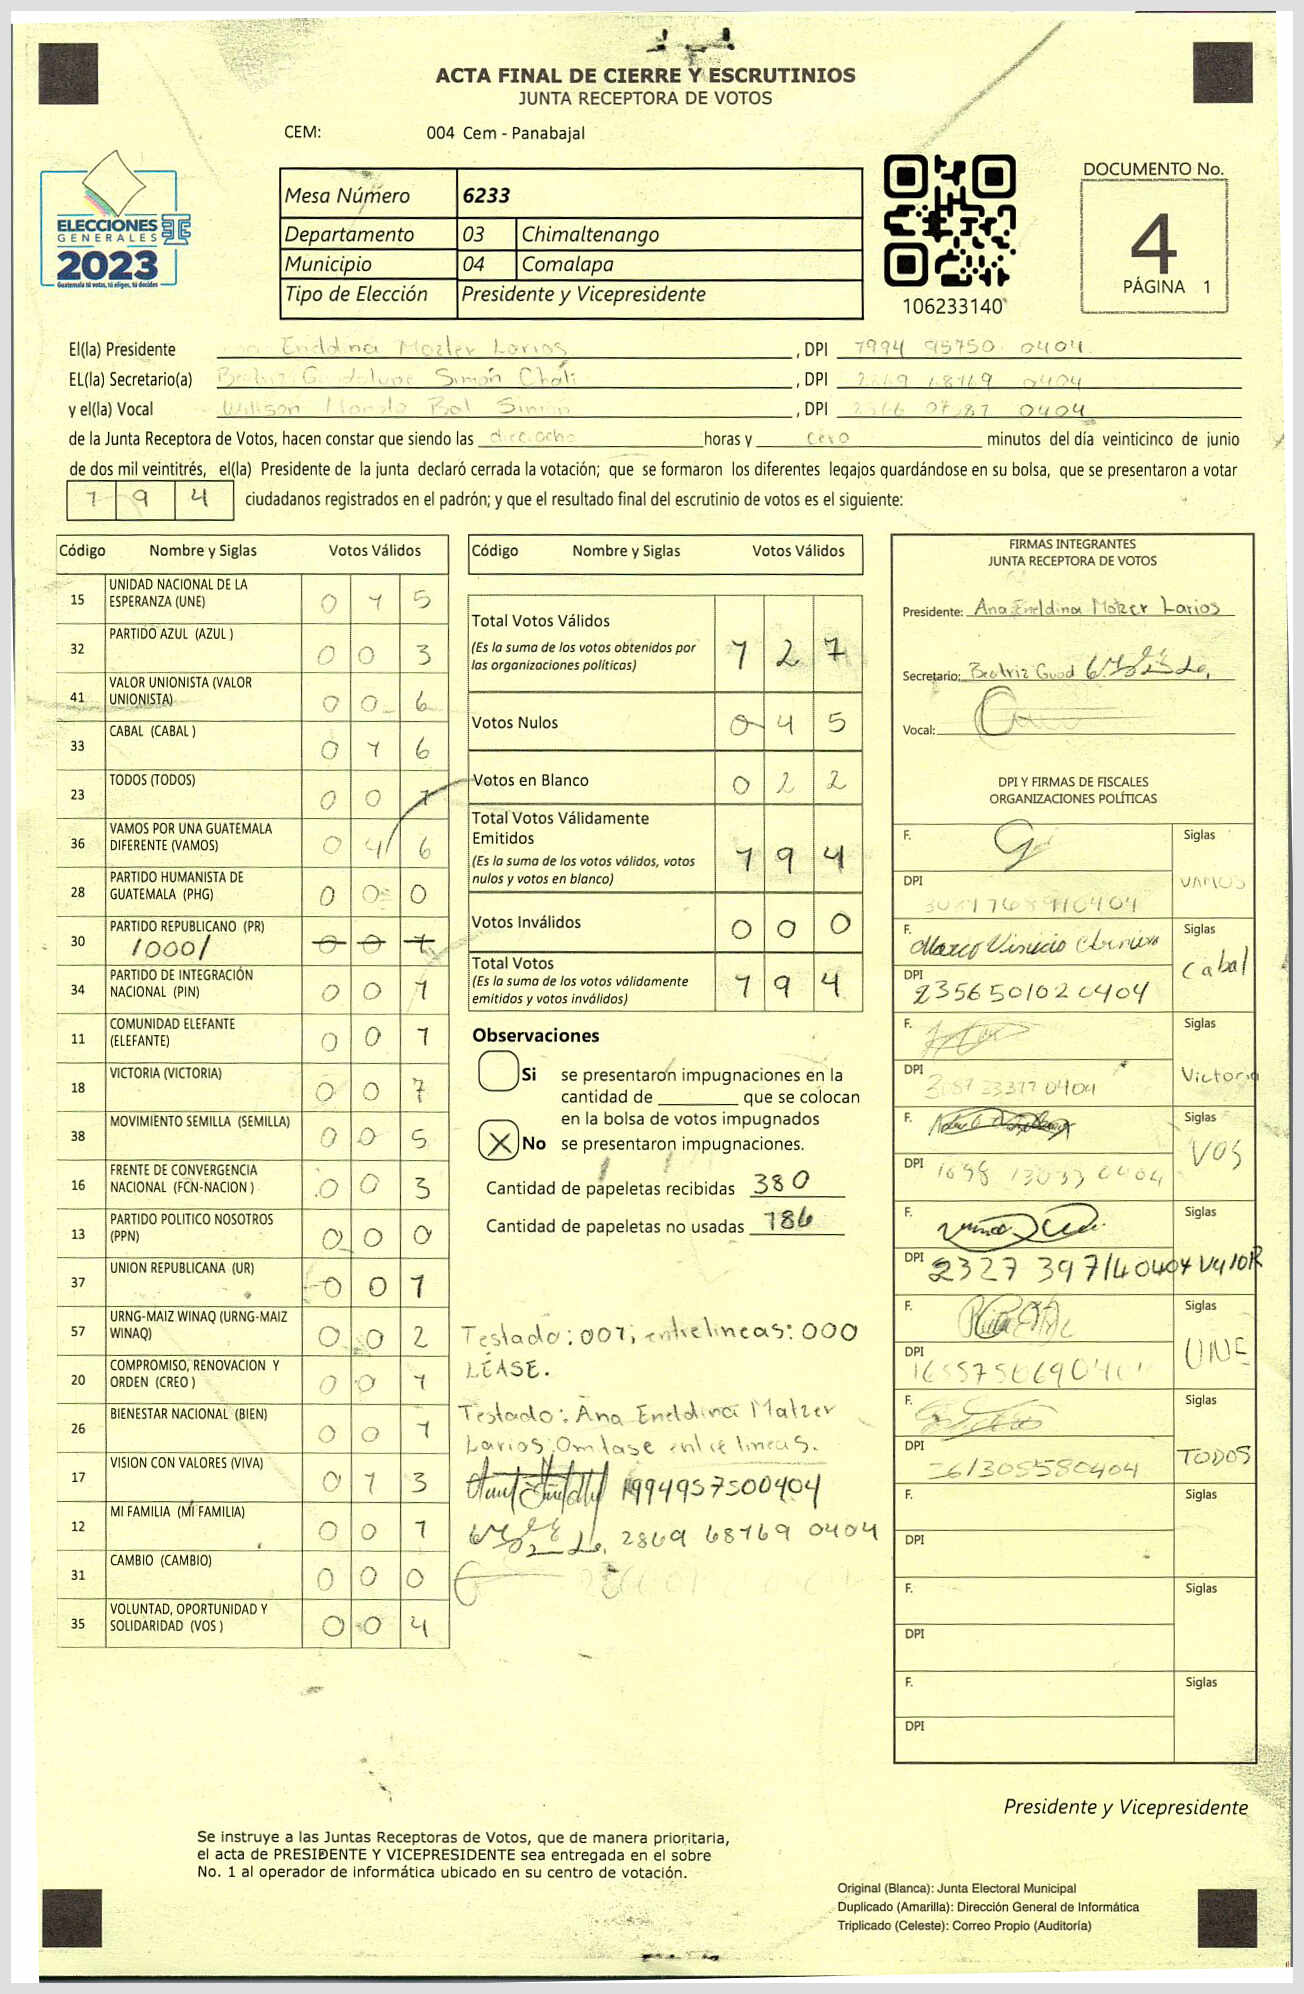 ACTA FINAL DE CIERRE Y ESCRUTINIOS
JUNTA RECEPTORA DE VOTOS
CEM: 004 Cem - Panabajal
ELECCIONES
GENERALES
2023
Guatemala tú votas, tú eliges, tú decides
Mesa Número 6233
Departamento 03 Chimaltenango
Municipio 04 Comalapa
Tipo de Elección Presidente y Vicepresidente
106233140
DOCUMENTO No.
4
PÁGINA 1
El(la) Presidente Eneldina Matzer Larios, DPI 1994 95750 0404
EL(la) Secretario(a) Beatriz Guadalupe Simón Chalí, DPI 2869 68769 0404
y el(la) Vocal Simón, DPI 0404
de la Junta Receptora de Votos, hacen constar que siendo las dieciocho horas y cero minutos del día veinticinco de junio
de dos mil veintitrés, el(la) Presidente de la junta declaró cerrada la votación; que se formaron los diferentes legajos guardándose en su bolsa, que se presentaron a votar
194 ciudadanos registrados en el padrón; y que el resultado final del escrutinio de votos es el siguiente:
Código Nombre y Siglas Votos Válidos
15 UNIDAD NACIONAL DE LA ESPERANZA (UNE) 0 1 5
32 PARTIDO AZUL (AZUL ) 0 0 3
41 VALOR UNIONISTA (VALOR UNIONISTA) 0 0 6
33 CABAL (CABAL ) 0 1 6
23 TODOS (TODOS) 0 0 1
36 VAMOS POR UNA GUATEMALA DIFERENTE (VAMOS) 0 4 6
28 PARTIDO HUMANISTA DE GUATEMALA (PHG) 0 0 0
30 PARTIDO REPUBLICANO (PR) /000/ 0 0 1
34 PARTIDO DE INTEGRACIÓN NACIONAL (PIN) 0 0 1
11 COMUNIDAD ELEFANTE (ELEFANTE) 0 0 1
18 VICTORIA (VICTORIA) 0 0 7
38 MOVIMIENTO SEMILLA (SEMILLA) 0 0 5
16 FRENTE DE CONVERGENCIA NACIONAL (FCN-NACION ) 0 0 3
13 PARTIDO POLITICO NOSOTROS (PPN) 0 0 0
37 UNION REPUBLICANA (UR) 0 0 1
57 URNG-MAIZ WINAQ (URNG-MAIZ WINAQ) 0 0 2
20 COMPROMISO, RENOVACION Y ORDEN (CREO ) 0 0 1
26 BIENESTAR NACIONAL (BIEN) 0 0 1
17 VISION CON VALORES (VIVA) 0 1 3
12 MI FAMILIA (MI FAMILIA) 0 0 1
31 CAMBIO (CAMBIO) 0 0 0
35 VOLUNTAD, OPORTUNIDAD Y SOLIDARIDAD (VOS ) 0 0 4
Código Nombre y Siglas Votos Válidos
Total Votos Válidos 1 2 7
(Es la suma de los votos obtenidos por
las organizaciones políticas)
Votos Nulos 0 4 5
Votos en Blanco 0 2 2
Total Votos Válidamente
Emitidos 1 9 4
(Es la suma de los votos válidos, votos
nulos y votos en blanco)
Votos Inválidos 0 0 0
Total Votos 1 9 4
(Es la suma de los votos válidamente
emitidos y votos inválidos)
Observaciones
Si se presentaron impugnaciones en la
cantidad de ________ que se colocan
en la bolsa de votos impugnados
X No se presentaron impugnaciones.
Cantidad de papeletas recibidas 380
Cantidad de papeletas no usadas 186
Testado: 001; entrelineas: 000
LÉASE.
Testado: Ana Eneldina Matzer
Larios Omitase entre lineas.
1994957500404
2869 68769 0404
FIRMAS INTEGRANTES
JUNTA RECEPTORA DE VOTOS
Presidente: Ana Eneldina Matzer Larios
Secretario: Beatriz Guad
Vocal:
DPI Y FIRMAS DE FISCALES
ORGANIZACIONES POLÍTICAS
F. Siglas
DPI VAMOS
F. Marco Vinicio Siglas
DPI 2356501020404 Cabal
F. Siglas
DPI 0404 Victoria
F. Siglas
DPI 0404 VOS
F. Siglas
DPI 2327 39714 0404 Valor
F. Siglas
DPI UNE
F. Siglas
DPI TODOS
F. Siglas
DPI
F. Siglas
DPI
F. Siglas
DPI
Presidente y Vicepresidente
Se instruye a las Juntas Receptoras de Votos, que de manera prioritaria,
el acta de PRESIDENTE Y VICEPRESIDENTE sea entregada en el sobre
No. 1 al operador de informática ubicado en su centro de votación.
Original (Blanca): Junta Electoral Municipal
Duplicado (Amarilla): Dirección General de Informática
Triplicado (Celeste): Correo Propio (Auditoría)